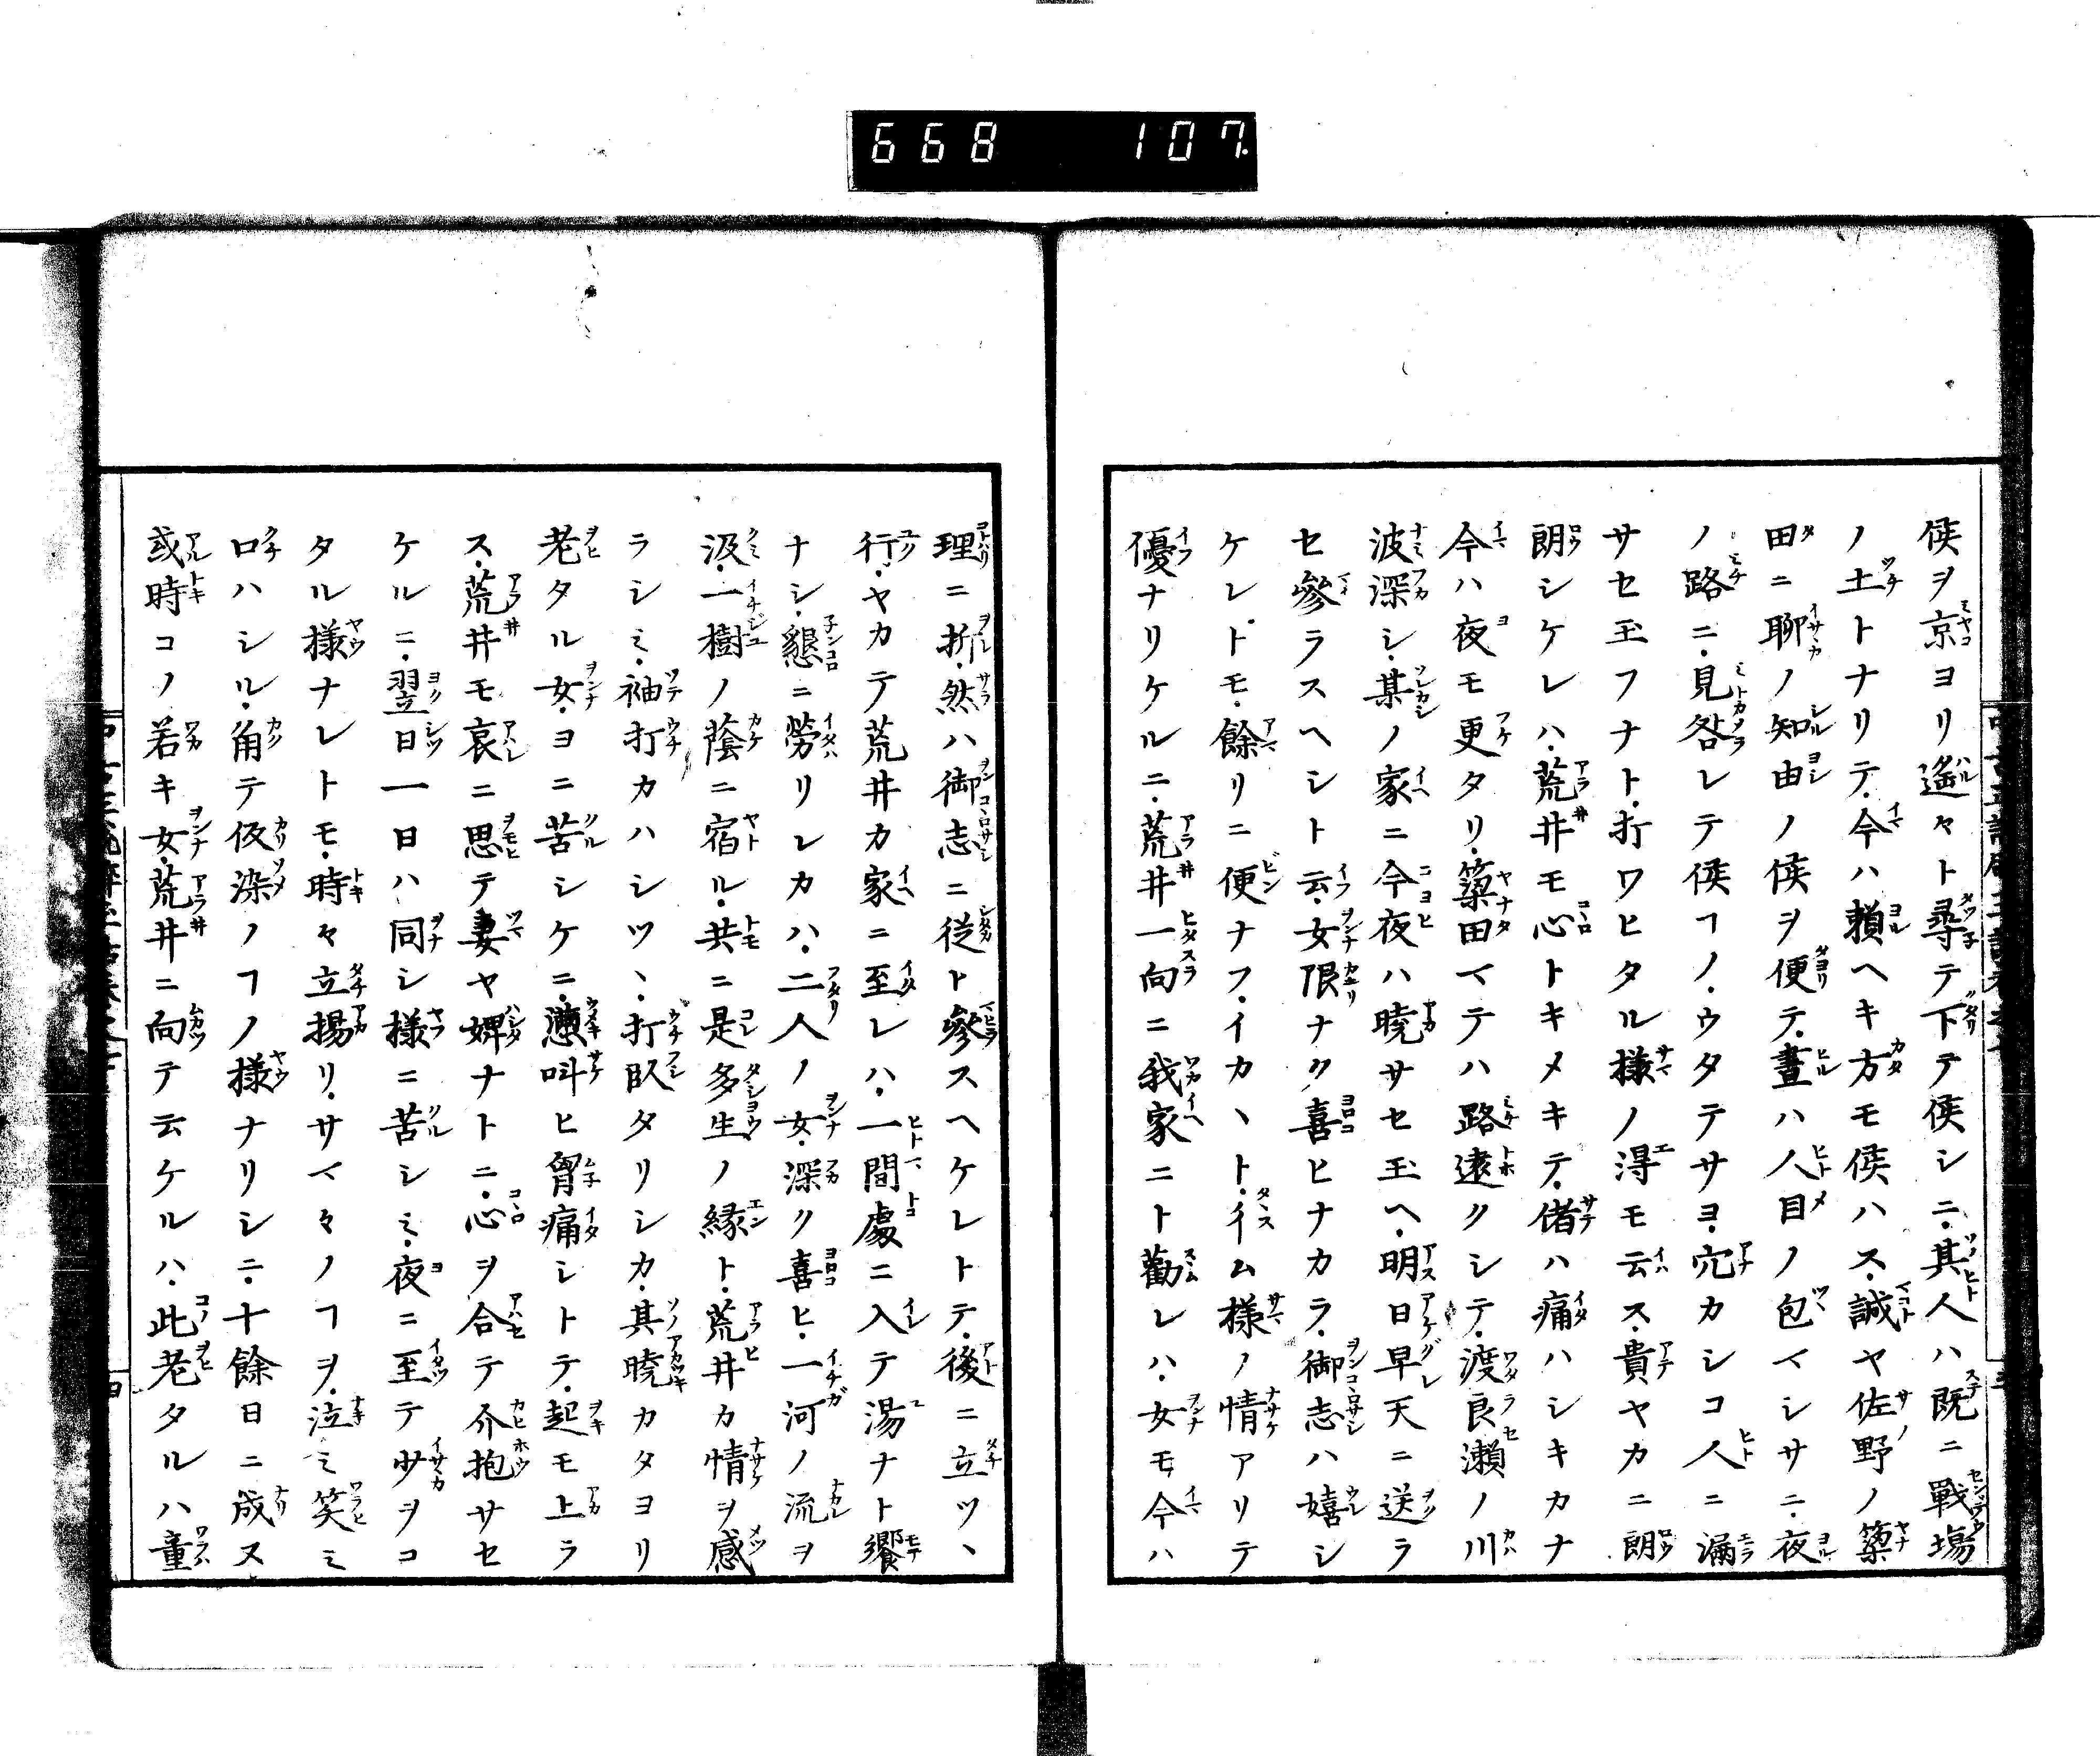 668 107
侯ヲ京ヨリ遙々ト尋テ下テ侯シニ其人ハ既ニ戰塲
ノ土トナリテ今ハ頼ヘキ方モ侯ハス誠ヤ佐野ノ簗
田ニ聊ノ知由ノ侯ヲ便テ晝ハ人目ノ包マシサニ夜
ノ路ニ見咎レテ侯フノウタテサヨ穴カシコ人ニ漏
サセ玉フナト打ワヒタル様ノ淂モ云ス貴ヤカニ朗
朗シケレハ荒井モ心トキメキテ偖ハ痛ハシキカナ
今ハ夜モ更タリ簗田マテハ路遠クシテ渡良瀬ノ川
波深シ某ノ家ニ今夜ハ曉サセ玉ヘ明日早天ニ送ラ
セ參ラスヘシト云女限ナク喜ヒナカラ御志ハ嬉シ
ケレトモ餘リニ便ナフイカヽト彳ム様ノ情アリテ
優ナリケルニ荒井一向ニ我家ニト勸レハ女モ今ハ
理ニ折然ハ御志ニ従ト參スヘケレトテ後ニ立ツヽ
行ヤカテ荒井カ家ニ至レハ一間處ニ入テ湯ナト饗
ナシ懇ニ勞リレカハ二人ノ女深ク喜ヒ一河ノ流ヲ
汲一樹ノ蔭ニ宿ル共ニ是多生ノ縁ト荒井カ情ヲ感
ラシミ袖打カハシツヽ打臥タリシカ其曉カタヨリ
老タル女ヨニ苦シケニ叫ヒ胷痛シトテ起モ上ラ
ス荒井モ哀ニ思テ妻ヤ婢ナトニ心ヲ合テ介抱サセ
ケルニ翌日一日ハ同シ様ニ苦シミ夜ニ至テ少ヲコ
タル様ナレトモ時々立揚リサマ々ノフヲ泣ミ笑ミ
口ハシル角テ仮染ノフノ様ナリシニ十餘日ニ成ヌ
或時コノ若キ女荒井ニ向テ云ケルハ此老タルハ童